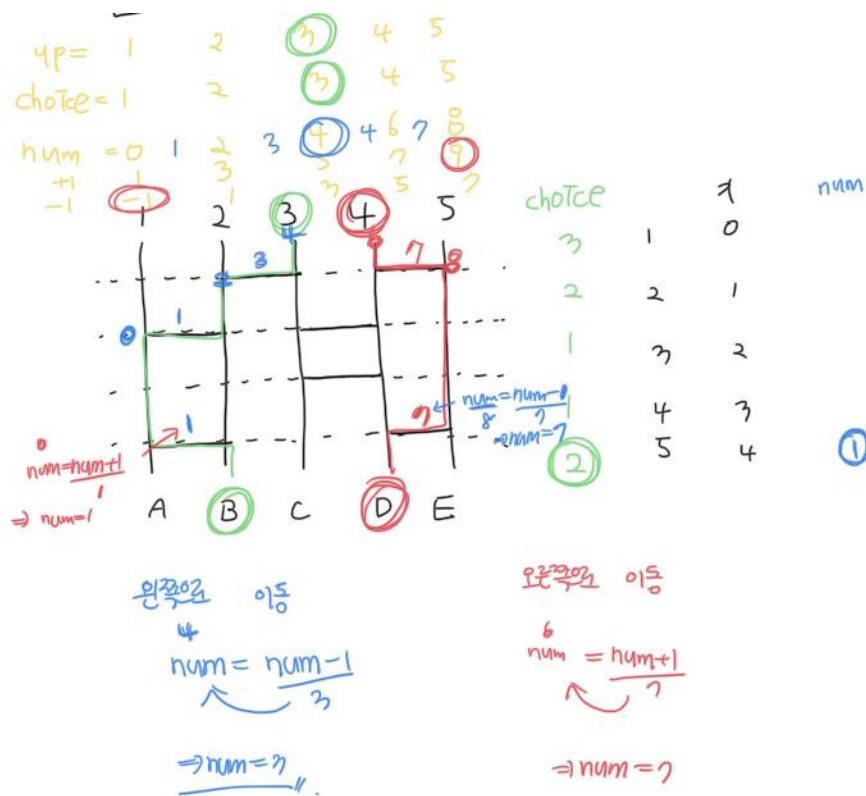 up= 1 2 3 4 5
choice= 1 2 3 4 5
num = 0 1 2 3 4 4 6 7 8
+1 1 3 5 7 9
-1 -1 1 3 5 7
1 2 3 4 5
choice x num
3 1 0
2 2 1
1 3 2
1 4 3
2 5 4 1
4
3 7 8
2
0 1
1 7
num=num-1
8 7
⇒num=7
0
num=num+1
1
⇒ num=1
A B C D E
왼쪽으로 이동
오른쪽으로 이동
4
num = num-1
3
⇒num=3
6
num = num+1
7
⇒num=7